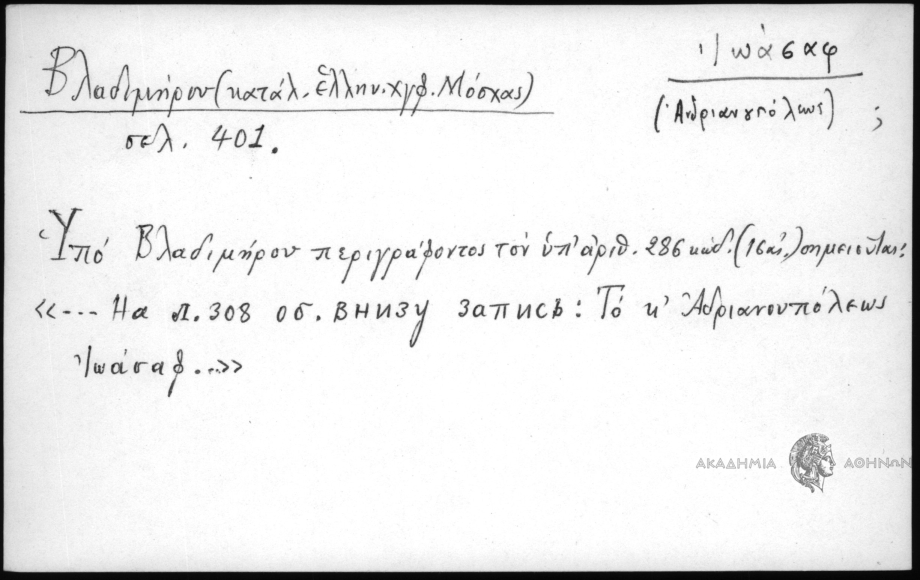 Ἰωάσαφ
(Ἀνδριανουπόλεως) ;
Βλαδιμήρου (κατάλ. Ἑλλην. χγφ. Μόσχας)
σελ. 401.
Ὑπό Βλαδιμήρου περιγράφοντος τον ὑπ' ἀριθ. 286 κώδ. (16 αἰ.) σημειοῦται:
«--- На л. 308 об. внизу запись: Τό κ' Ἀδριανουπόλεως
Ἰωάσαφ...»
ΑΚΑΔΗΜΙΑ ΑΘΗΝΩΝ